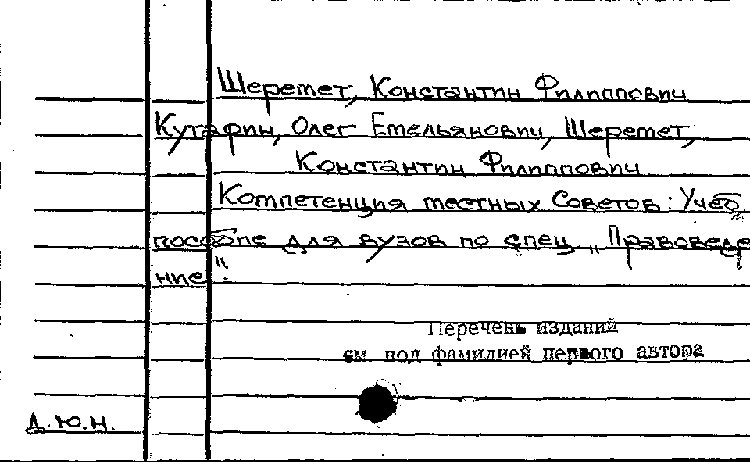 Шеремет, Константин Филиппович
Кутафин, Олег Емельянович, Шеремет,
Константин Филиппович
Компетенция местных Советов: Учеб.
пособие для вузов по спец. „Правоведе
ние".
Перечень изданий
см. под фамилией первого автора
Д.Ю.Н.